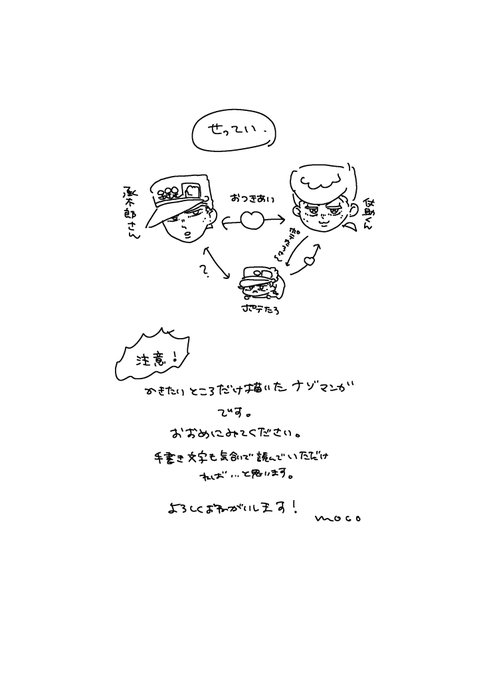 せってい.
承太郎さん
おつきあい
仗助くん
?
ポテたろ
注意!
かきたいところだけ描いたナゾマンガ
です。
おおめにみてください。
手書き文字も気合いで読んでいただけ
れば…と思います。
よろしくおねがいします!
moco